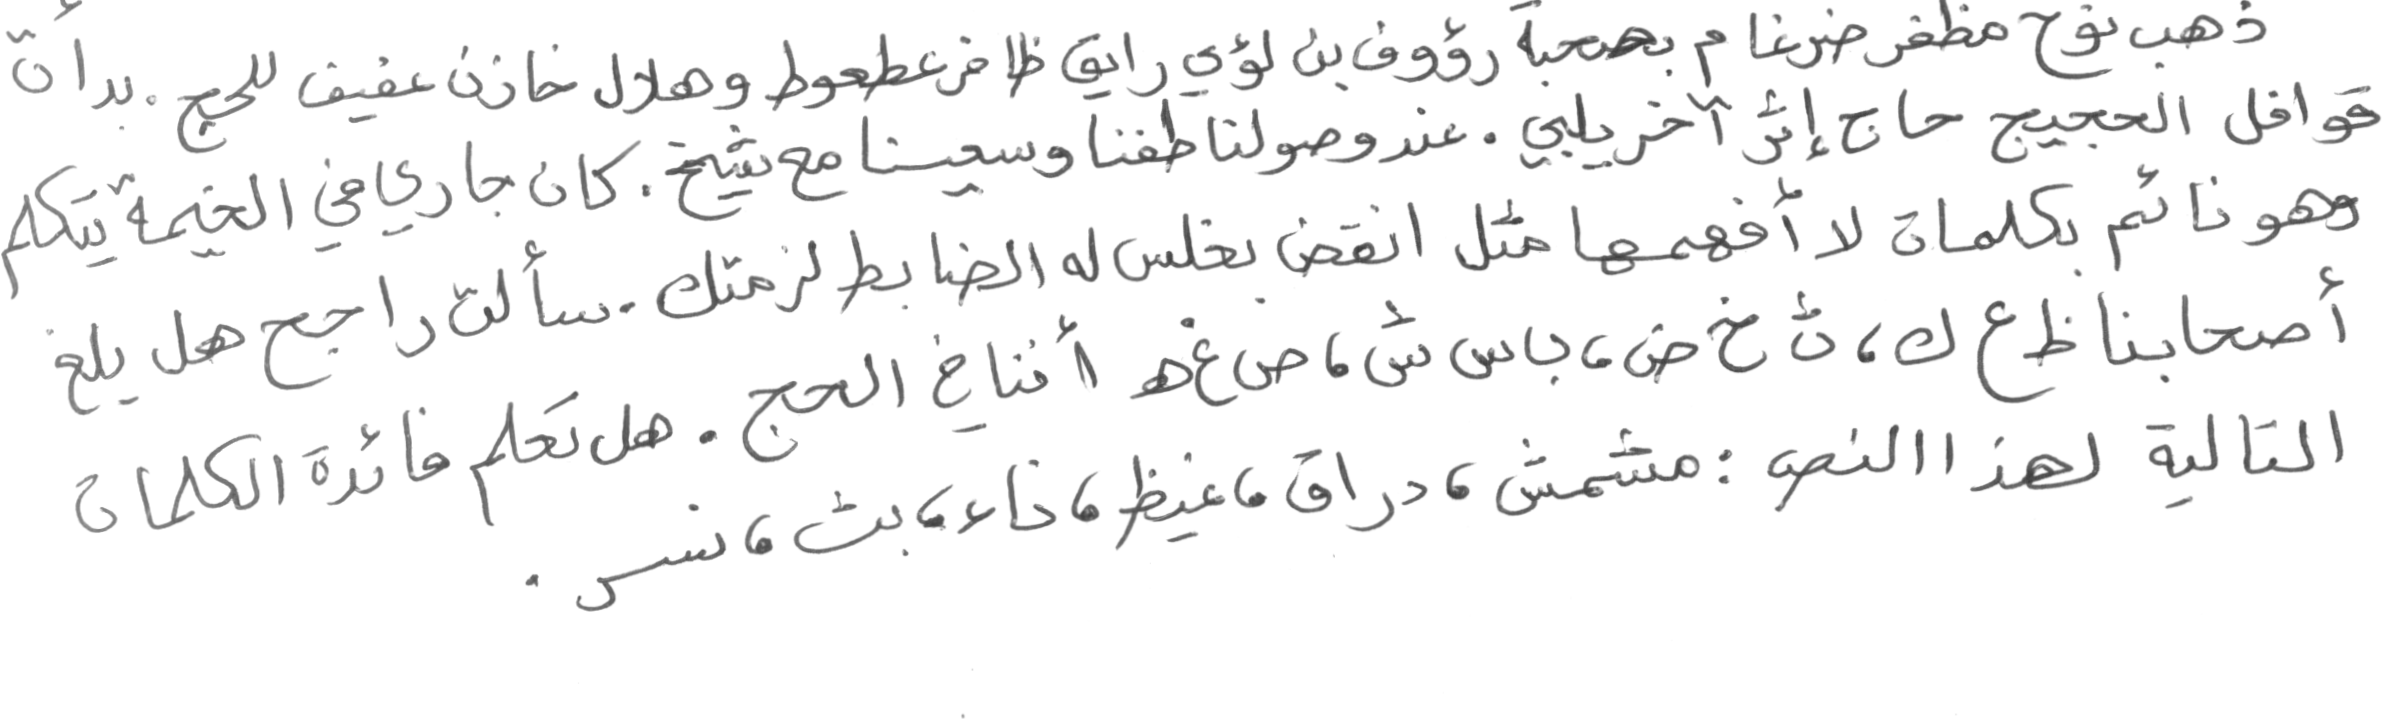 ذهب نوح مظفر ضرغام بصحبة رؤوف بن لؤي رايق ظافر عطعوط وهلال خازن عفيف للحج . بدأت
قوافل الحجيج حاج إثر آخر يلبي . عند وصولنا طفنا وسعينا مع شيخ . كان جاري في الخيمة يتكلم
وهو نائم بكلمات لا أفهمها مثل انقض بغلس له الضابط لزمتك . سألت راجح هل يلغ
أصحابنا ظ ع ك ، ث خ ض ، باس ش ، ص غ ه أثناخ الحج . هل تعلم فائدة الكلمات
التالية لهذا النص : مشمش ، دراق ، غيظ ، ذاء ، بث ، نسر .